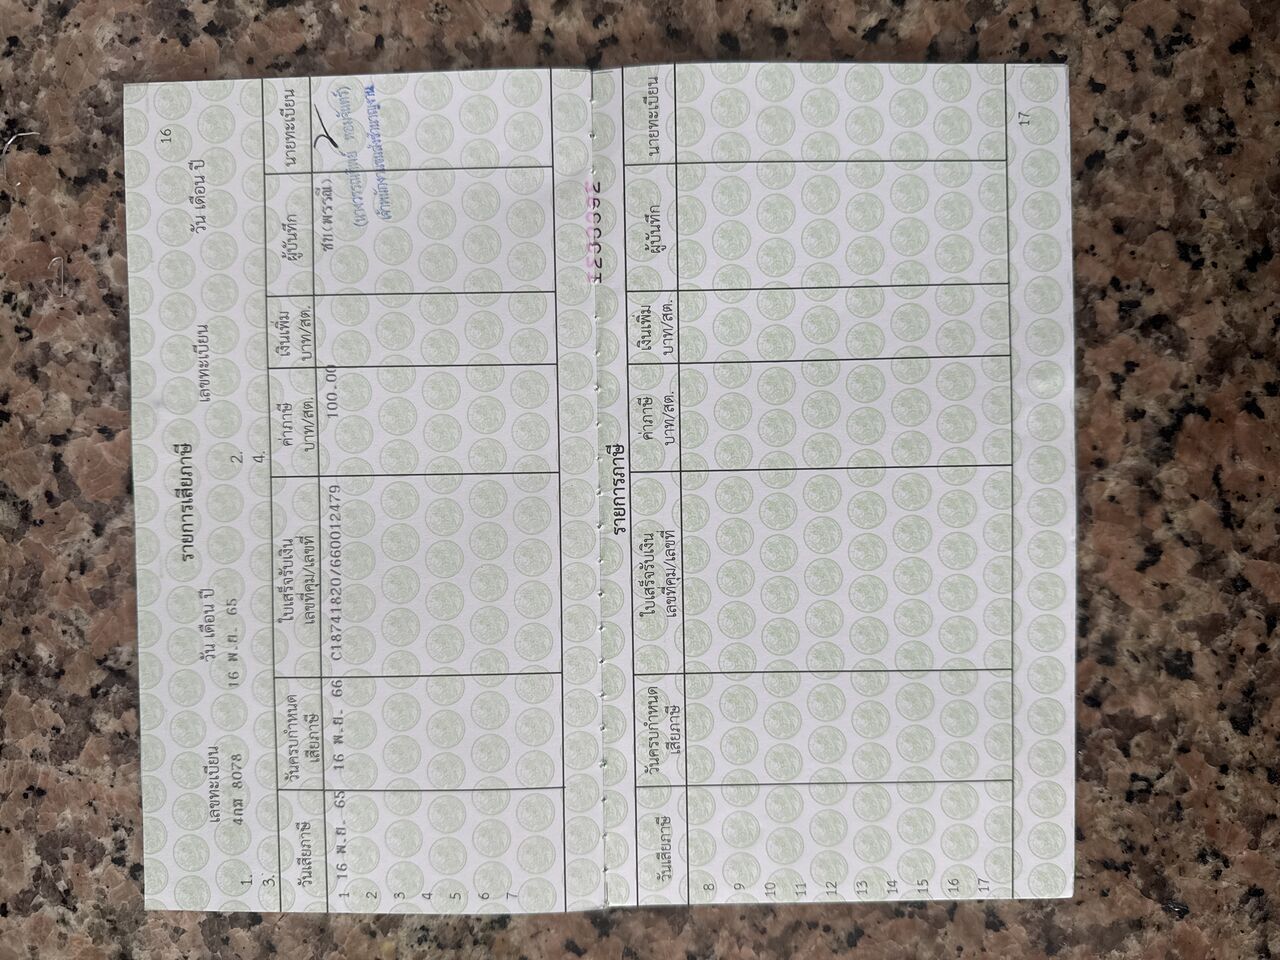 16
รายการเสียภาษี
เลขทะเบียน วัน เดือน ปี เลขทะเบียน วัน เดือน ปี
1. 4กฆ 8078 16 พ.ย. 65 2.
3. 4.
วันเสียภาษี วันครบกำหนด เสียภาษี ใบเสร็จรับเงิน เลขที่คุม/เลขที่ ค่าภาษี บาท/สต. เงินเพิ่ม บาท/สต. ผู้บันทึก นายทะเบียน
1 16 พ.ย. 65 16 พ.ย. 66 C18741820/660012479 100.00 ชท(พรรณี)
2
3
4
5
6
7
รายการภาษี
วันเสียภาษี วันครบกำหนด เสียภาษี ใบเสร็จรับเงิน เลขที่คุม/เลขที่ ค่าภาษี บาท/สต. เงินเพิ่ม บาท/สต. ผู้บันทึก นายทะเบียน
8
9
10
11
12
13
14
15
16
17
17